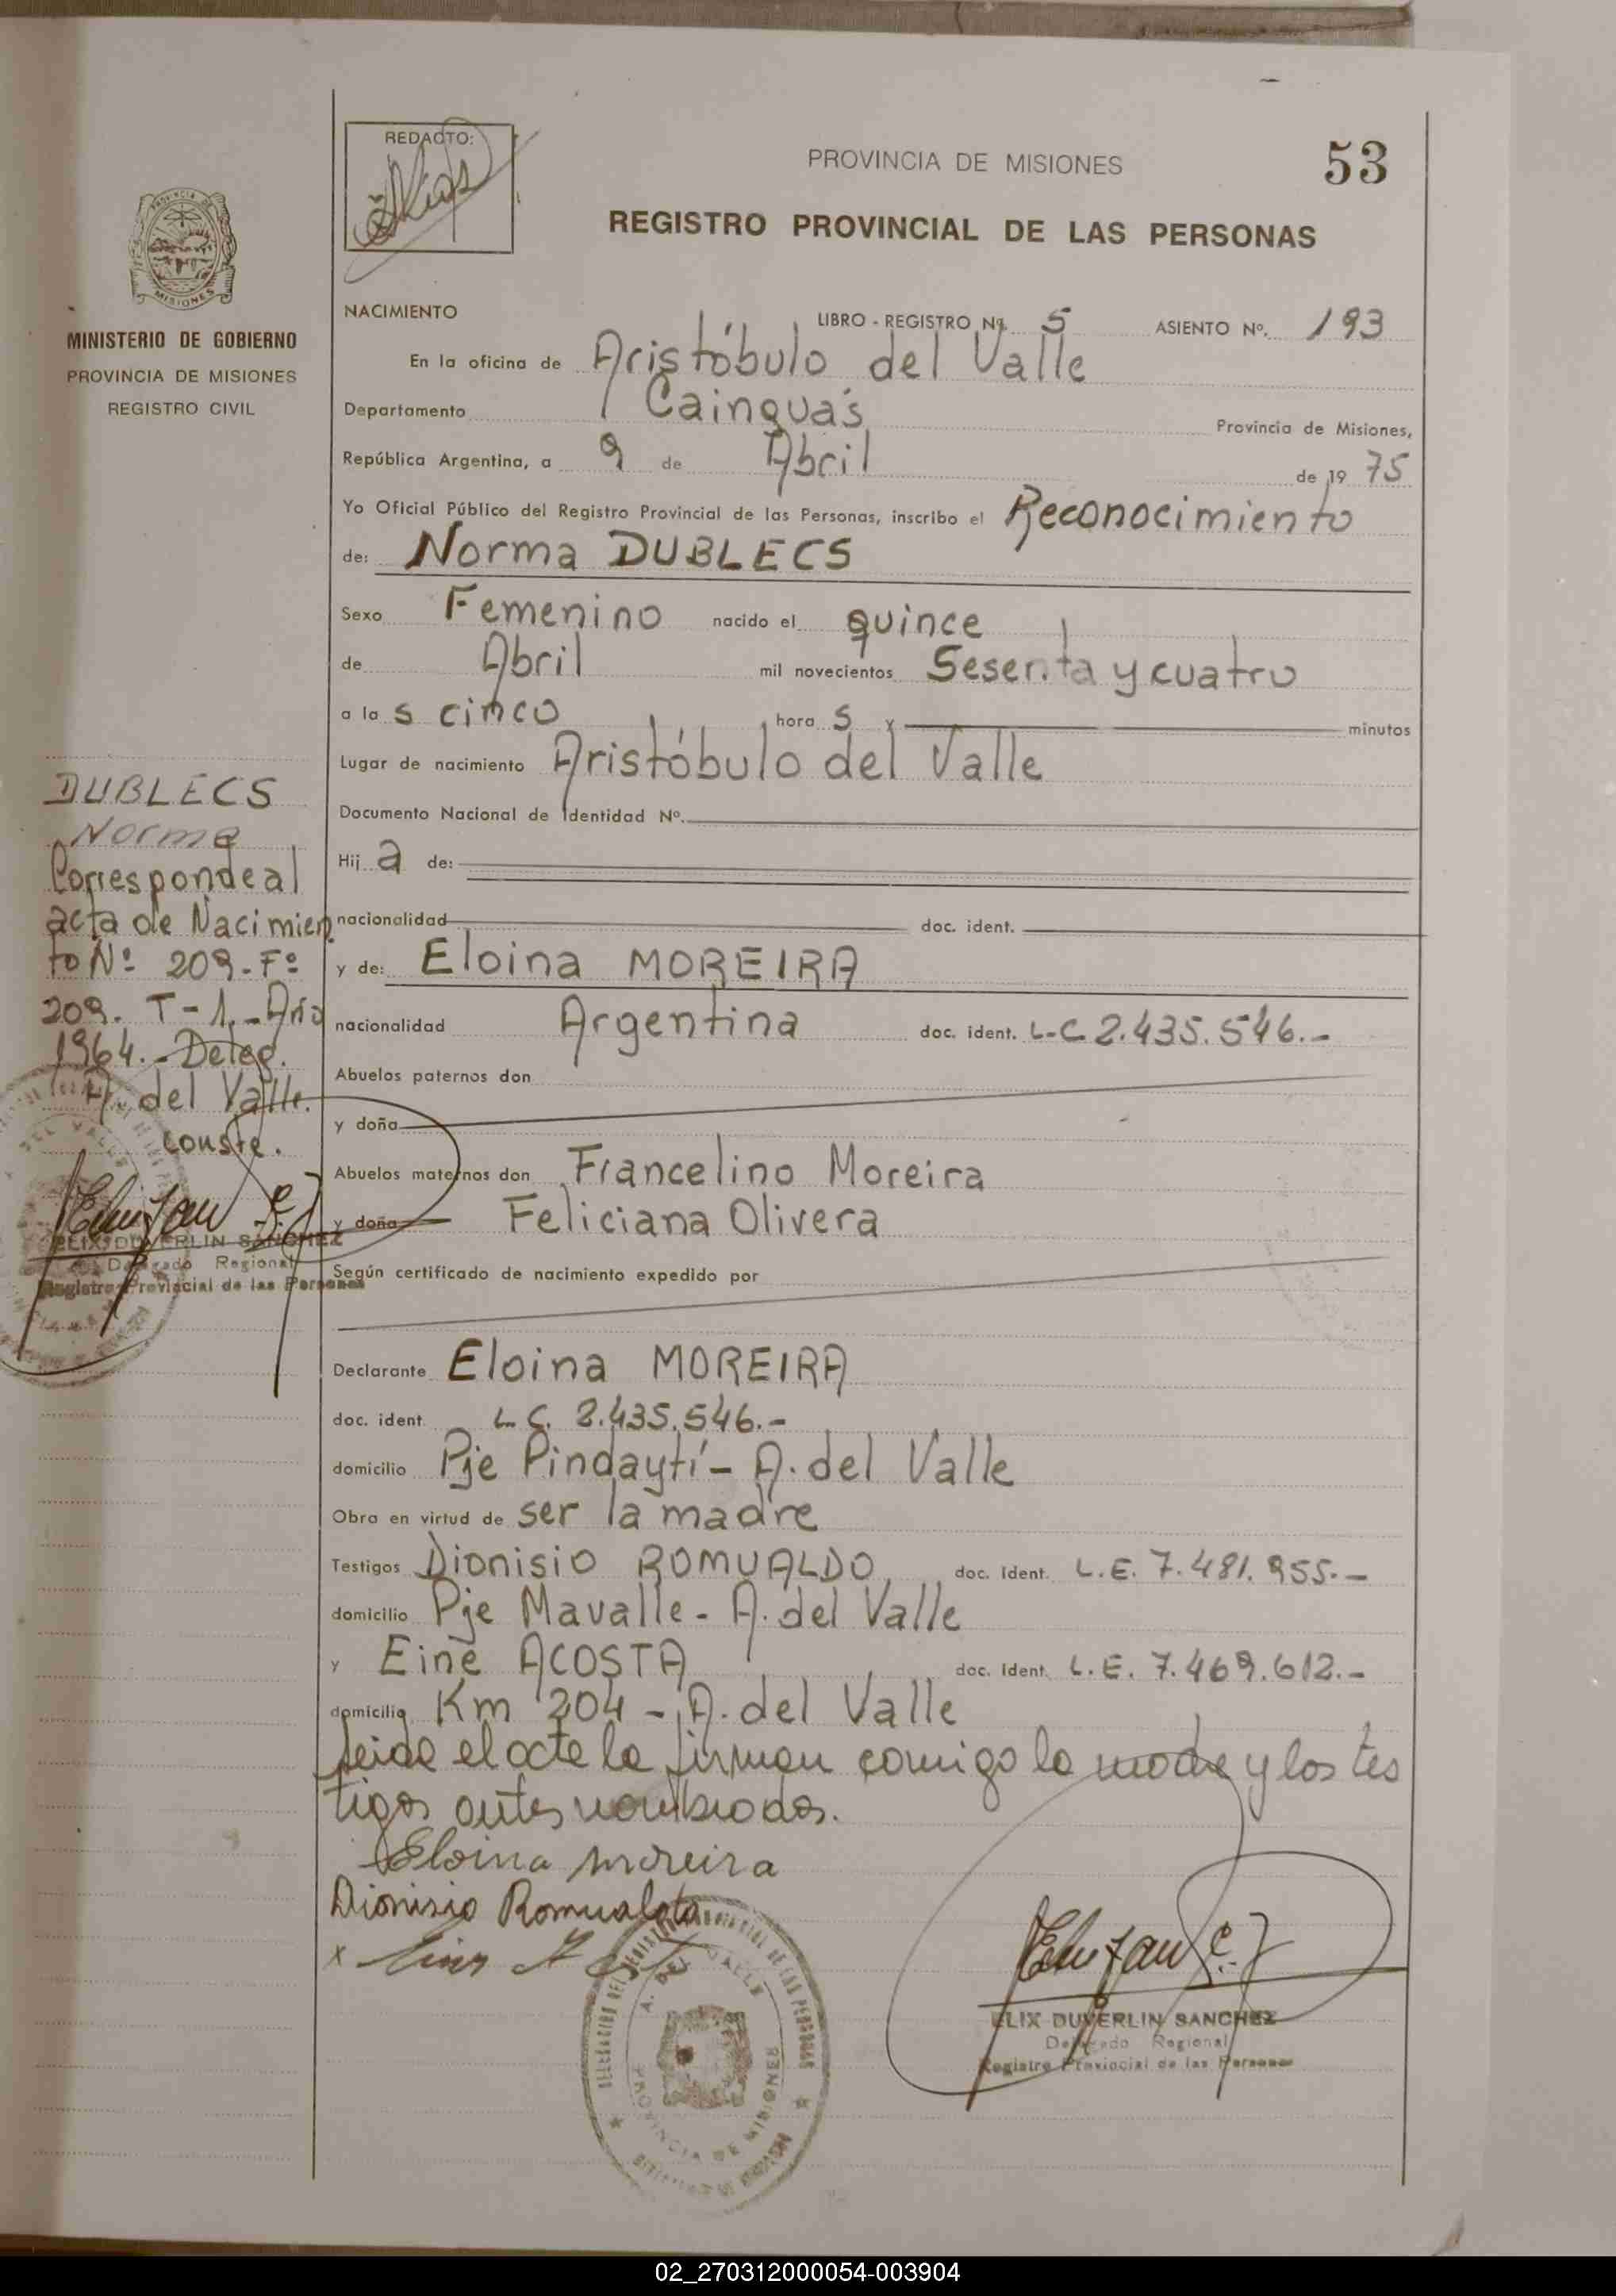 REDACTO:
PROVINCIA DE MISIONES
53
REGISTRO PROVINCIAL DE LAS PERSONAS
PROVINCIA DE
MISIONES
MINISTERIO DE GOBIERNO
PROVINCIA DE MISIONES
REGISTRO CIVIL
NACIMIENTO LIBRO - REGISTRO Nº 5 ASIENTO Nº. 193
En la oficina de Aristóbulo del Valle
Departamento Cainguás Provincia de Misiones,
República Argentina, a 9 de Abril de 1975
Yo Oficial Público del Registro Provincial de las Personas, inscribo el Reconocimiento
de: Norma DUBLECS
Sexo Femenino nacido el quince
de Abril mil novecientos Sesenta y cuatro
a las cinco horas y minutos
Lugar de nacimiento Aristóbulo del Valle
Documento Nacional de Identidad Nº.
Hija de:
nacionalidad doc. ident.
y de: Eloina MOREIRA
nacionalidad Argentina doc. ident. L-C 2.435.546.-
Abuelos paternos don
y doña
Abuelos maternos don Francelino Moreira
y doña Feliciana Olivera
Según certificado de nacimiento expedido por
Declarante Eloina MOREIRA
doc. ident. L.C. 2.435.546.-
domicilio Pje Pindaytí - A. del Valle
Obra en virtud de ser la madre
Testigos Dionisio ROMUALDO doc. Ident. L.E. 7.481.955.-
domicilio Pje Mavalle - A. del Valle
y Eine ACOSTA doc. Ident. L.E. 7.469.612.-
domicilio Km 204 - A. del Valle
Leida el acta la firman comigo la madre y los tes
tigos antes nombrados.
Eloina moreira
Dionisio Romualdo
x
ELIX DUVERLIN SANCHEZ
Delegado Regional
Registro Provincial de las Personas
DELEGACION DEL REGISTRO PROVINCIAL DE LAS PERSONAS
A. DEL VALLE
PROVINCIA DE MISIONES
DUBLECS
Norma
Corresponde al
acta de Nacimien
to Nº 209. Fº
209. T-1.- Año
1964.- Deleg.
A. del Valle.
conste.
ELIX DUVERLIN SANCHEZ
Delegado Regional
Registro Provincial de las Personas
02_270312000054-003904